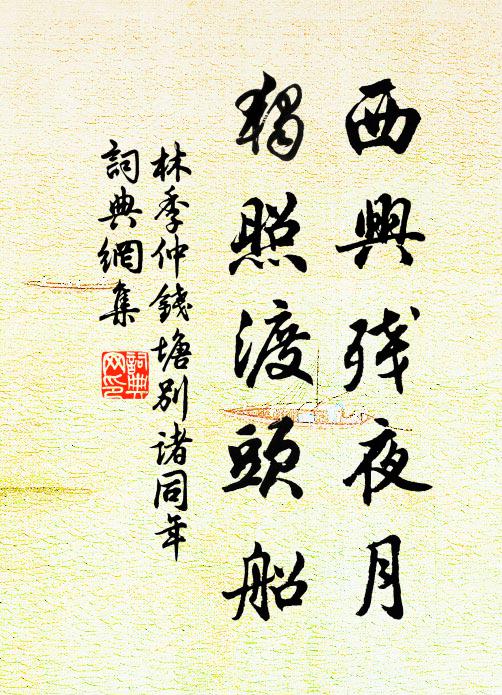 西興残夜月
獨照渡頭船
林季仲錢塘別諸同年
詞典網集
詞典网印